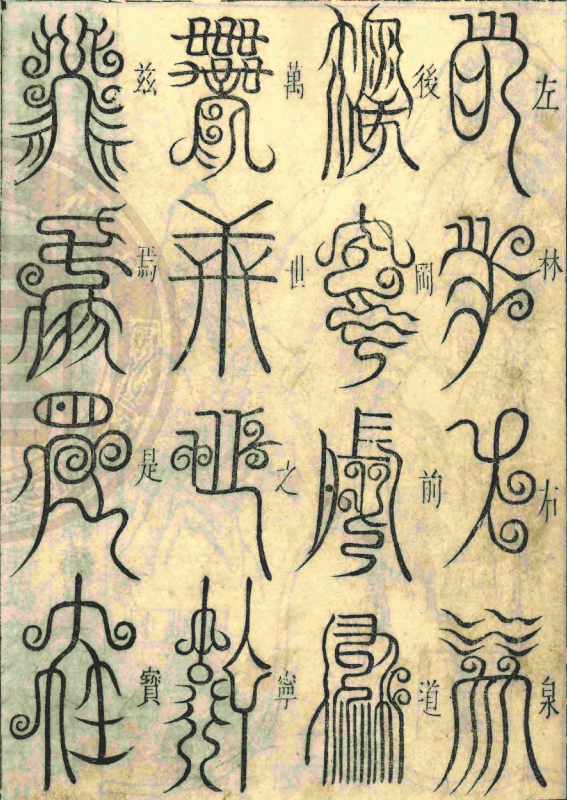 左林右泉
後岡前道
萬世之寧
茲焉是寶